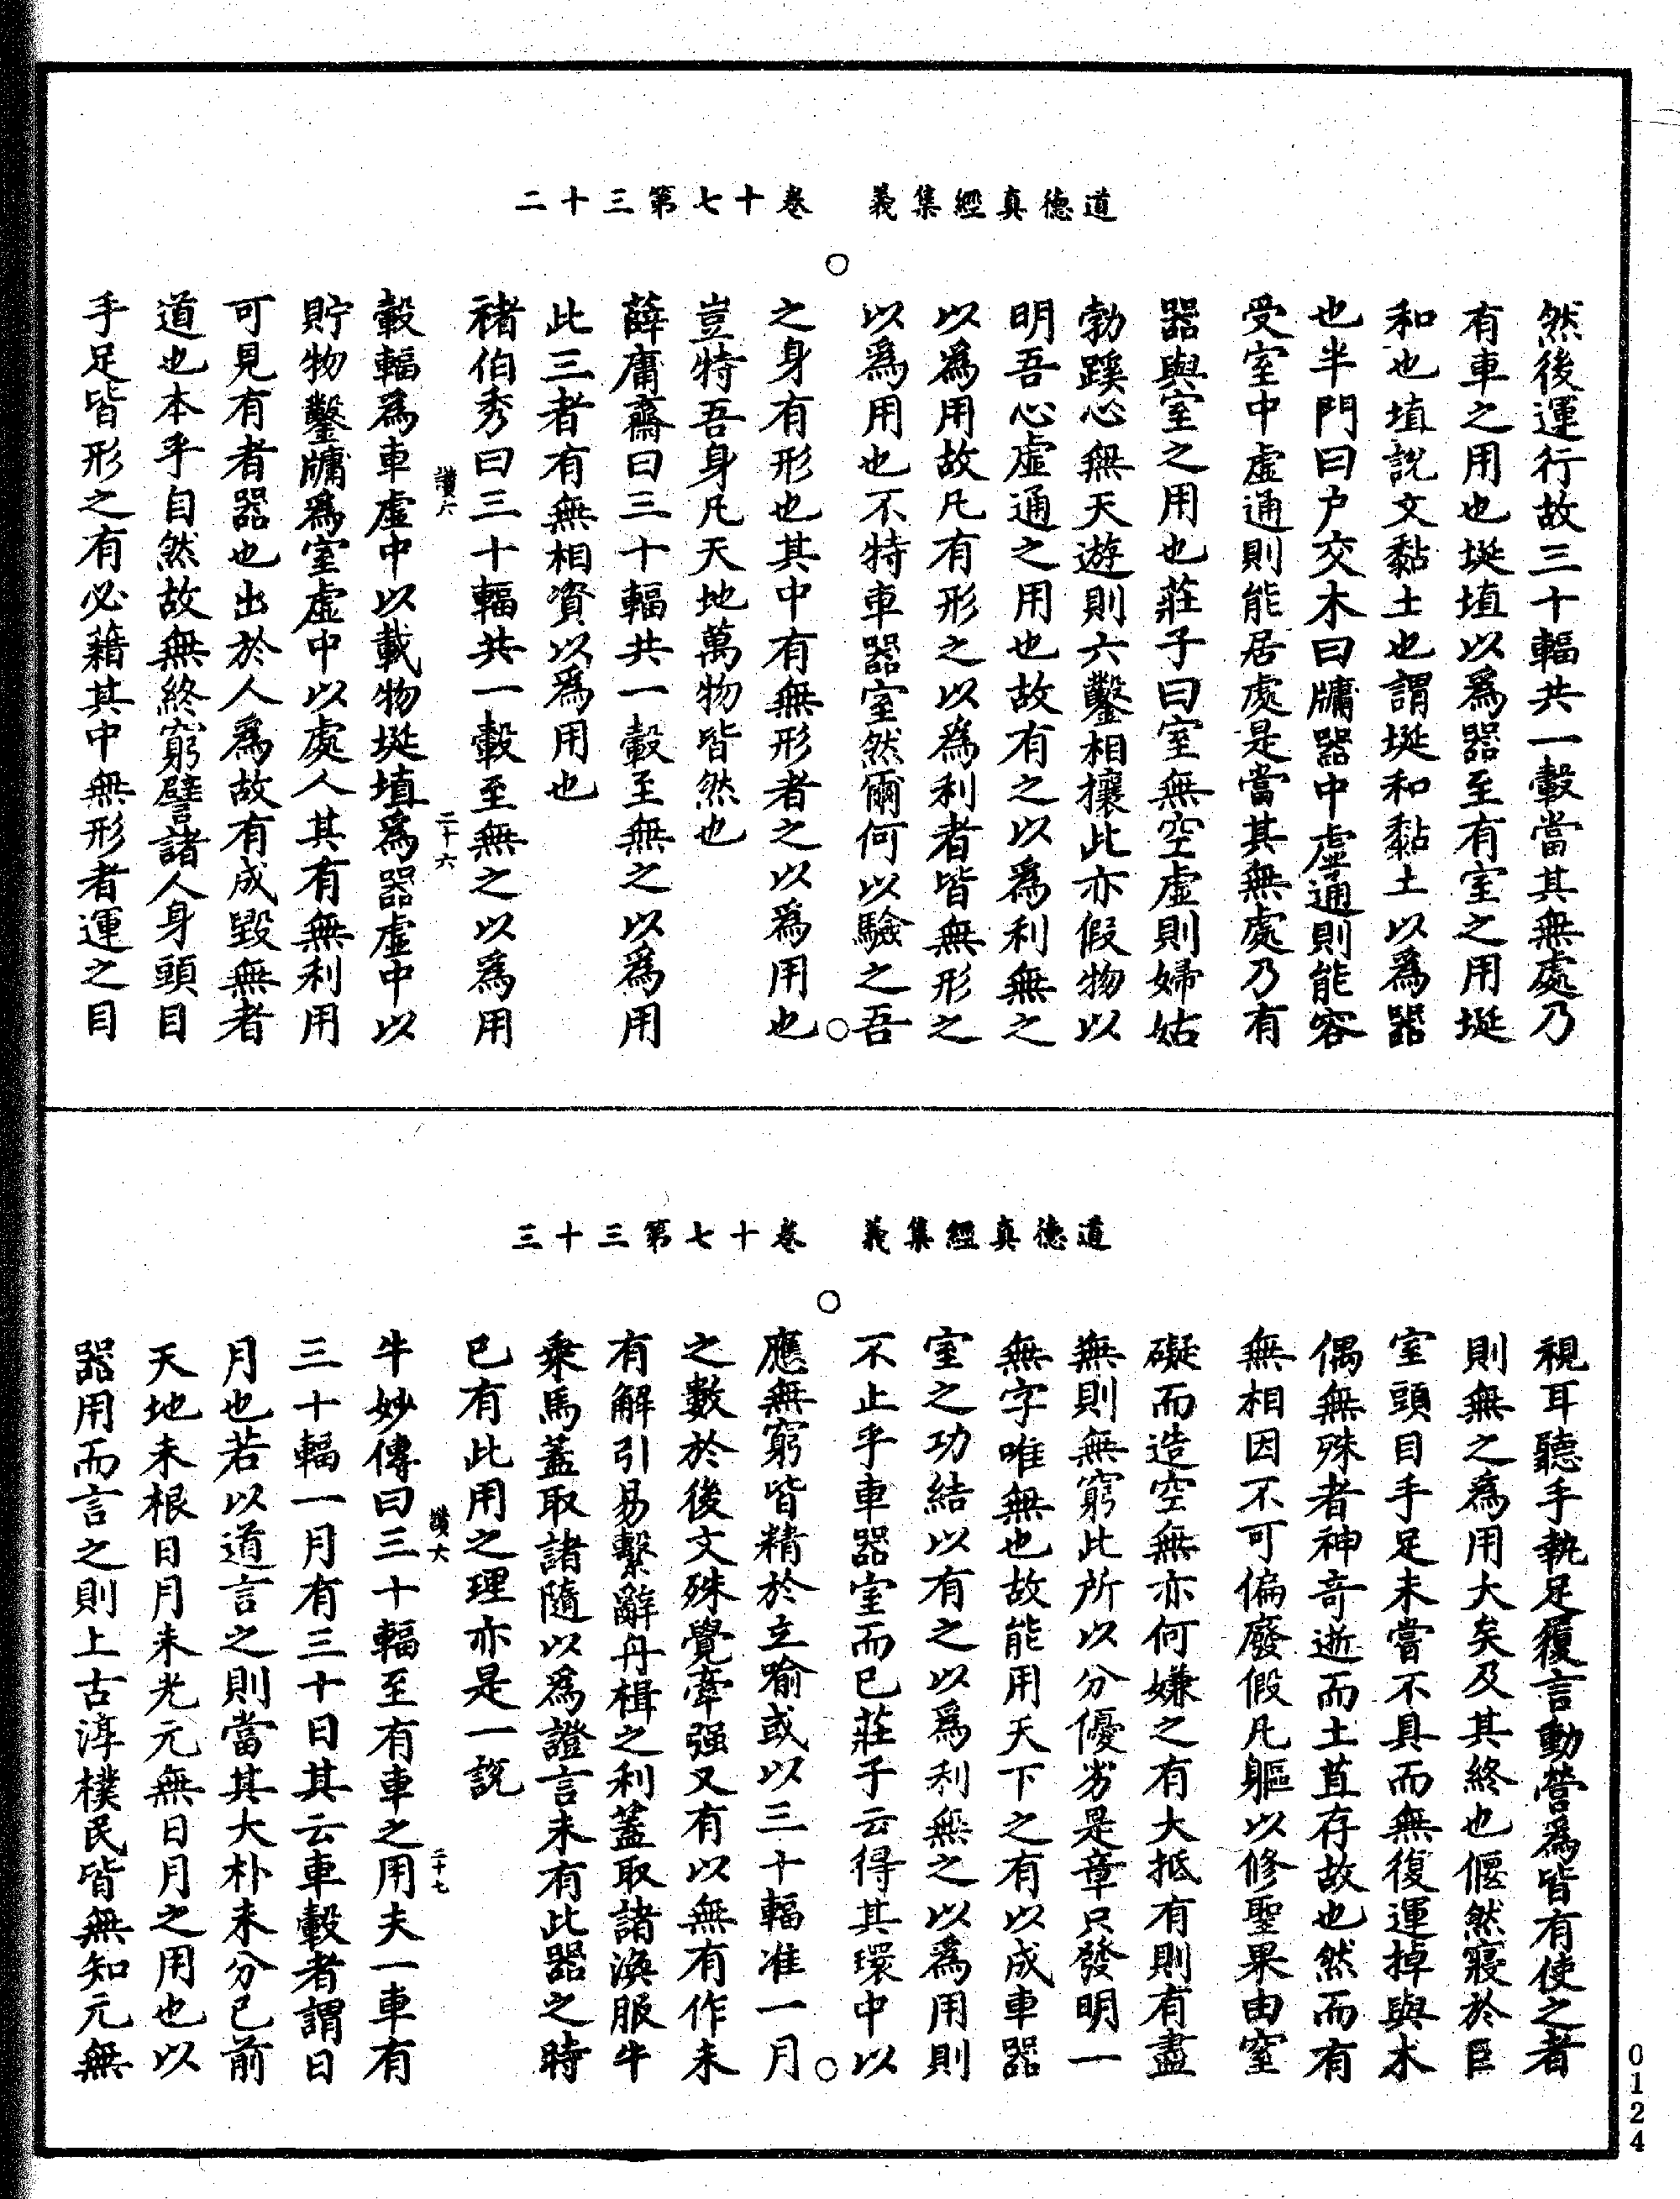 道德真經集義　卷十七第三十二
然後運行故三十輻共一轂當其無處乃
有車之用也埏埴以爲器至有室之用埏
和也埴說文黏土也謂埏和黏土以爲器
也半門曰户交木曰牖器中虛通則能容
受室中虛通則能居處是當其無處乃有
器與室之用也莊子曰室無空虛則婦姑
勃蹊心無天遊則六鑿相攘此亦假物以
明吾心虛通之用也故有之以爲利無之
以爲用故凡有形之以爲利者皆無形之
以爲用也不特車器室然爾何以驗之吾
之身有形也其中有無形者之以爲用也
豈特吾身凡天地萬物皆然也
薛庸齋曰三十輻共一轂至無之以爲用
此三者有無相資以爲用也
褚伯秀曰三十輻共一轂至無之以爲用
讃六　二十六
轂輻爲車虛中以載物埏埴爲器虛中以
貯物鑿牖爲室虛中以處人其有無利用
可見有者器也出於人爲故有成毀無者
道也本乎自然故無終窮譬諸人身頭目
手足皆形之有必藉其中無形者運之目
道德真經集義　卷十七第三十三
視耳聽手執足履言動營爲皆有使之者
則無之爲用大矣及其終也偃然寢於巨
室頭目手足未嘗不具而無復運掉與木
偶無殊者神奇逝而土苴存故也然而有
無相因不可偏廢假凡軀以修聖果由窒
礙而造空無亦何嫌之有大抵有則有盡
無則無窮此所以分優劣是章只發明一
無字唯無也故能用天下之有以成車器
室之功結以有之以爲利無之以爲用則
不止乎車器室而已莊子云得其環中以
應無窮皆精於立喻或以三十輻准一月
之數於後文殊覺牽强又有以無有作未
有解引易繫辭舟楫之利蓋取諸渙服牛
乘馬蓋取諸隨以爲證言未有此器之時
已有此用之理亦是一說
讃六　二十七
牛妙傳曰三十輻至有車之用夫一車有
三十輻一月有三十日其云車轂者謂日
月也若以道言之則當其大朴未分已前
天地未根日月未光元無日月之用也以
器用而言之則上古淳樸民皆無知元無
0124